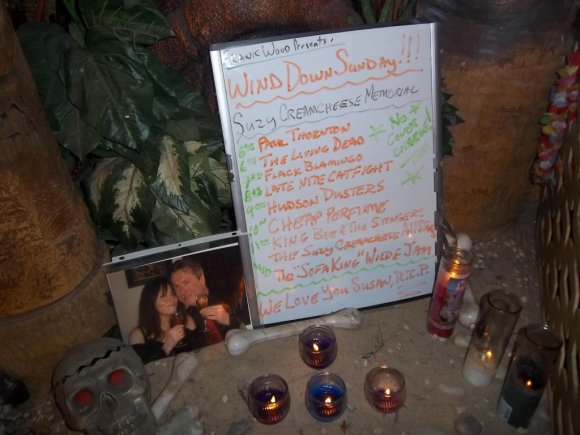 Frank Wood Presents:
WIND DOWN SUNDAY!!!
SUZY CREAMCHEESE MEMORIAL
THORNTON
THE LIVING DEAD
FLACK BLAMINGO
LATE NITE CATFIGHT
9:00 HUDSON DUSTERS
CHEAP PERFUME
KING BEE & THE STINGERS
THE SUZY CREAMCHEESE ALLSTARS
MID THE "SOFA KING" WILDE JAM
WE LOVE YOU SUSAN, R.I.P.
NO
COVER
CHARGE!